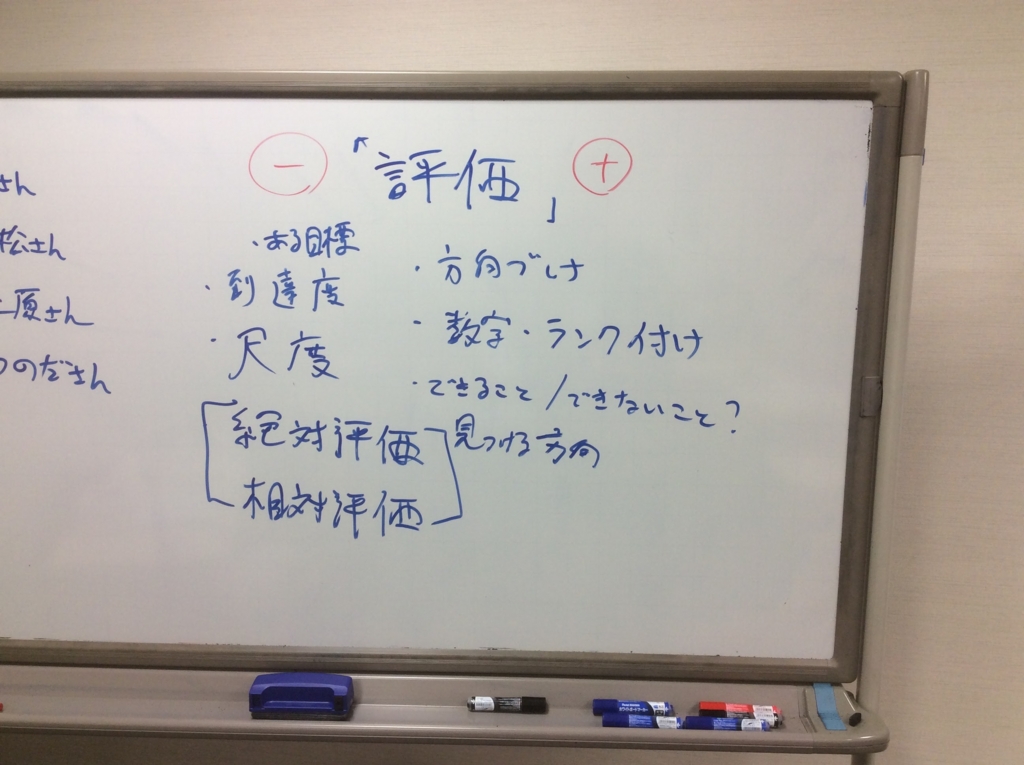 さん
松さん
原さん
のださん
− 「評価」 +
・ある目標
・到達度
・尺度
絶対評価
相対評価
・方向づけ
・数字・ランク付け
・できること/できないこと?
見つける方向